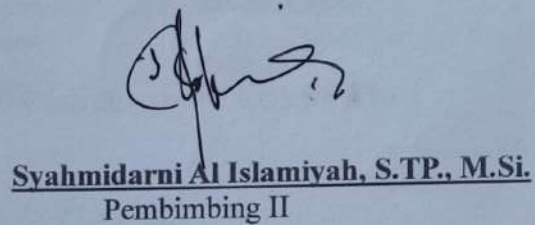 Syahmidarni Al Islamiyah, S.TP., M.Si.
Pembimbing II